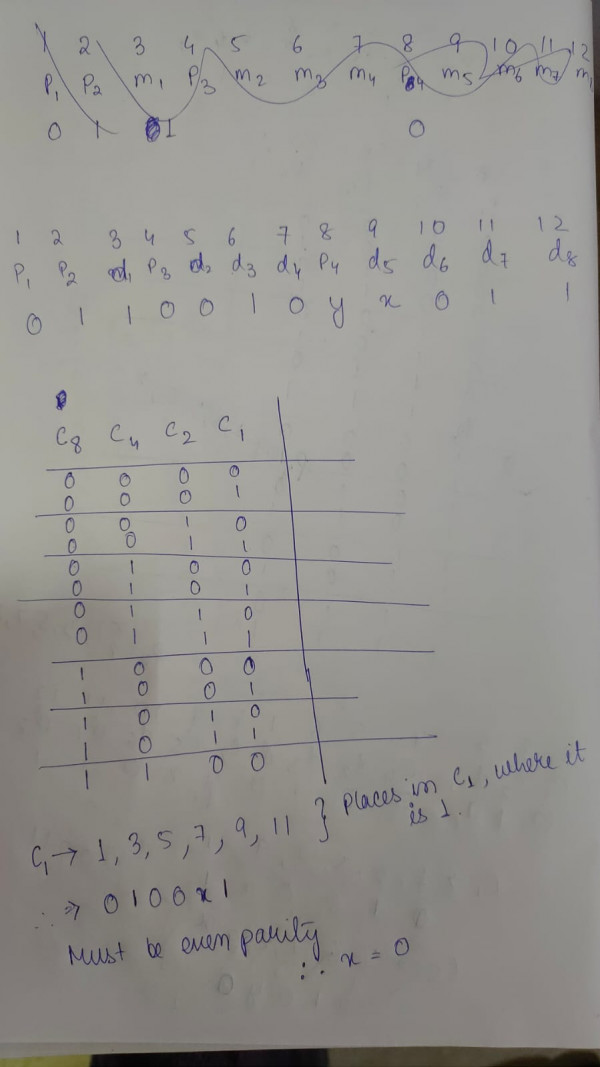 1 2 3 4 5 6 7 8 9 10 11 12
P₁ P₂ m₁ P₃ m₂ m₃ m₄ P4 m₅ m₆ m₇ m
0 1 1 0
1 2 3 4 5 6 7 8 9 10 11 12
P₁ P₂ d₁ P₃ d₂ d₃ d₄ P₄ d₅ d₆ d₇ d₈
0 1 1 0 0 1 0 y x 0 1 1
C₈ C₄ C₂ C₁
0 0 0 0
0 0 0 1
0 0 1 0
0 0 1 1
0 1 0 0
0 1 0 1
0 1 1 0
0 1 1 1
1 0 0 0
1 0 0 1
1 0 1 0
1 0 1 1
1 1 0 0
C₁ → 1, 3, 5, 7, 9, 11 } Places in C₁, where it
is 1.
∴ ⇒ 0 1 0 0 x 1
Must be even parity
∴ x = 0